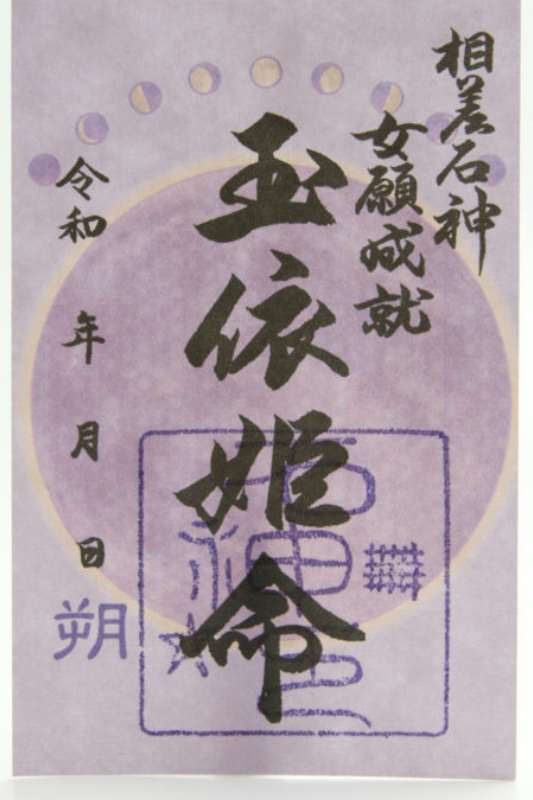 相差石神
女願成就
玉依姫命
令和 年 月 日
朔
石神